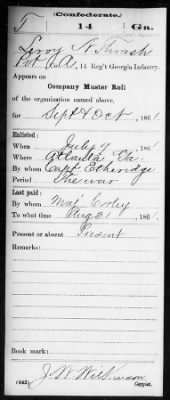 (Confederate.)
T 14 Ga.
Leroy N. Thrash
Pvt Co. A, 14 Reg't Georgia Infantry.
Appears on
Company Muster Roll
of the organization named above,
for Sept & Oct, 1861.
Enlisted:
When July 9, 1861.
Where Atlanta Ga.
By whom Capt Etheridge
Period The war
Last paid:
By whom Maj Corley
To what time Aug 31, 1861.
Present or absent Present
Remarks:
Book mark:
(642) J. W. Wilkinson
Copyist.